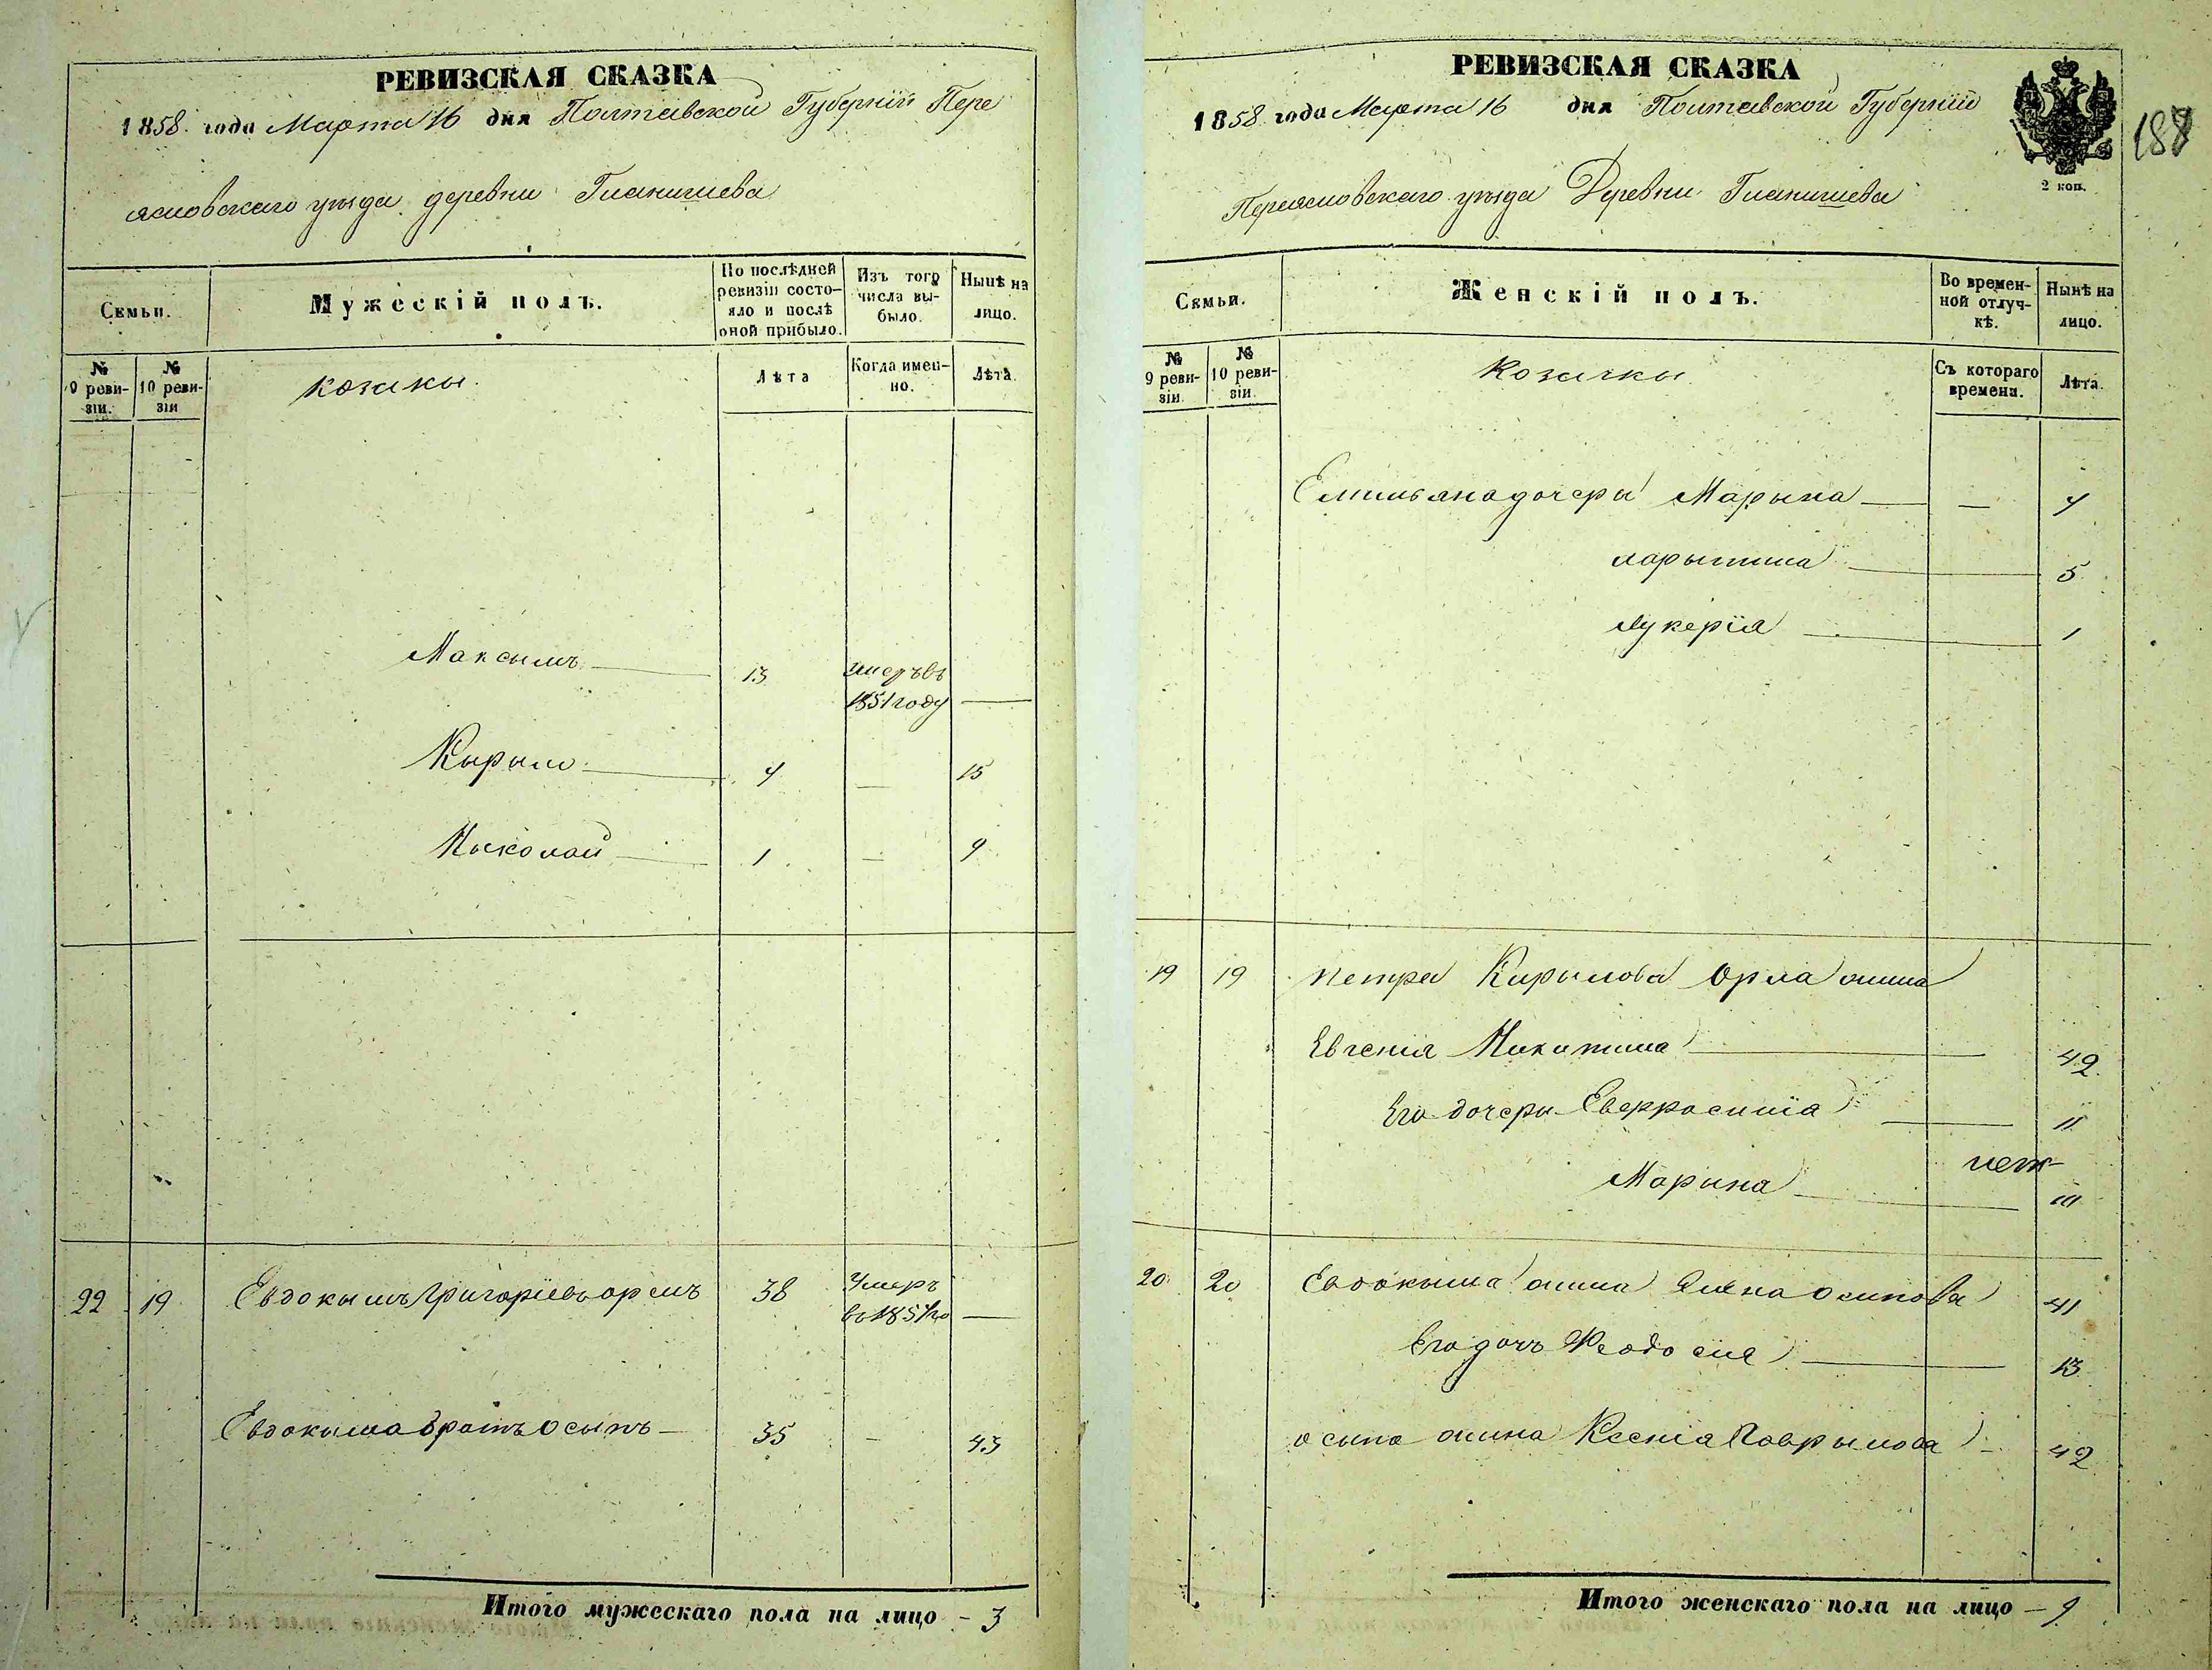 РЕВИЗСКАЯ СКАЗКА
1858 года Марта 16 дня Полтавской Губернии Пере
яславского уезда деревни Гланишева
Семьи.
Мужескій полъ.
По послѣдней ревизіи состояло и послѣ оной прибыло.
Изъ того числа выбыло.
Нынѣ на лицо.
№ 9 ревизіи.
№ 10 ревизіи
козаки.
Лѣта
Когда именно.
Лѣта.
Максымъ 13 умеръ въ
1851 году
Кырыло 7 15
Ныколай 1 9
22 19 Евдокымъ Григорiевъ орелъ 38 Умеръ
въ 1851 го
Евдокыма братъ Осыпъ 35 43
Итого мужескаго пола на лицо - 3
РЕВИЗСКАЯ СКАЗКА
1858 года Марта 16 дня Полтавской Губернии
188
2 коп.
Переясловского уезда Деревни Гланишева
Семьи.
Женскій полъ.
Во временной отлучкѣ.
Нынѣ на лицо.
№ 9 ревизіи.
№ 10 ревизіи.
Козачки
Съ котораго времени.
Лѣта.
Емильяна дочеры Марына — 7
5
Лукерія 1
19 19 Петра Кирылова Орла жина
Евгенія Никитина 42
Его дочеры Евфросинія 11
Марына
20 20 Евдокыма жина Осипова 41
Его дочь Феодосія 13
Осыпа жина Ксенія Гаврылова 42
Итого женскаго пола на лицо - 9